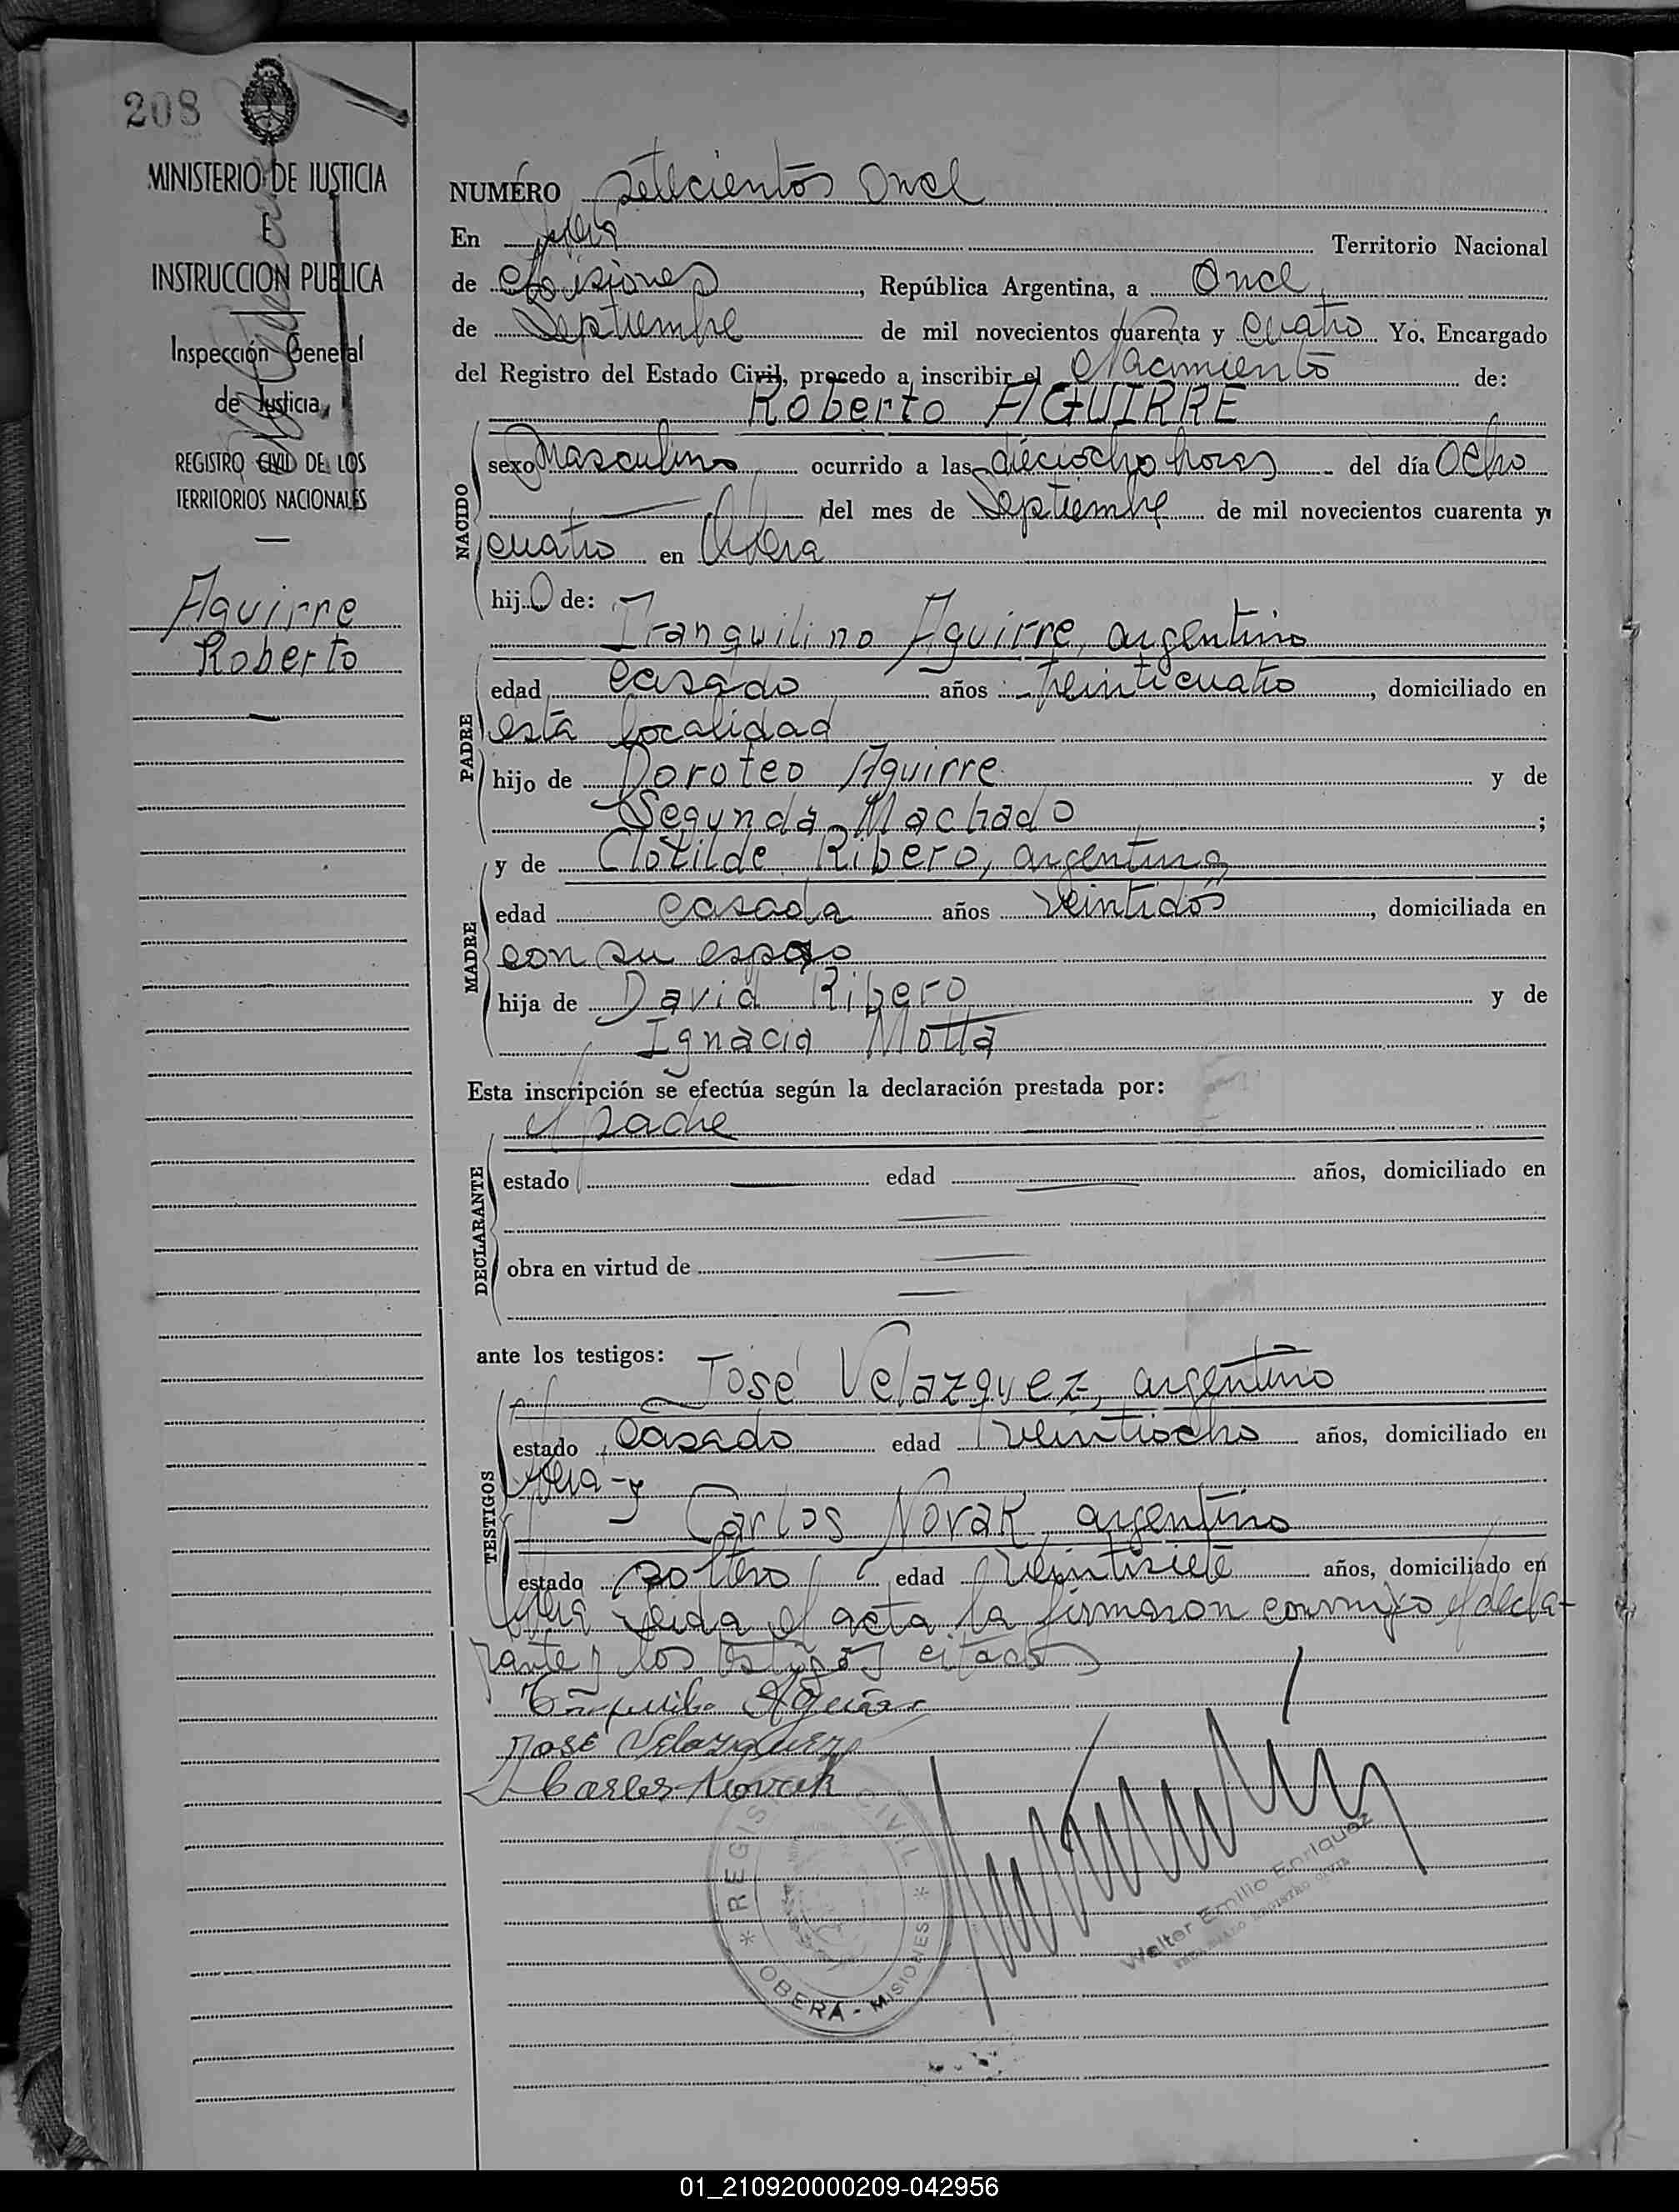 208
MINISTERIO DE JUSTICIA
E
INSTRUCCION PUBLICA
Inspección General
de Justicia
REGISTRO CIVIL DE LOS
TERRITORIOS NACIONALES
Aguirre
Roberto
NUMERO Setecientos Once
En Oberá Territorio Nacional
de Misiones, República Argentina, a Once
de Septiembre de mil novecientos cuarenta y cuatro Yo, Encargado
del Registro del Estado Civil, procedo a inscribir el Nacimiento de:
Roberto AGUIRRE
NACIDO
sexo Masculino ocurrido a las dieciocho horas del día Ocho
del mes de Septiembre de mil novecientos cuarenta y
cuatro en Oberá
hijo de:
Tranquilino Aguirre, argentino
PADRE
edad casado años treinticuatro, domiciliado en
esta localidad
hijo de Doroteo Aguirre y de
Segunda Machado ;
y de Clotilde Ribero, argentina
MADRE
edad casada años veintidos, domiciliada en
con su esposo
hija de David Ribero y de
Ignacia Motta
Esta inscripción se efectúa según la declaración prestada por:
el padre
DECLARANTE
estado edad años, domiciliado en
obra en virtud de
ante los testigos:
José Velazquez, argentino
TESTIGOS
estado casado edad veintiocho años, domiciliado en
Oberá - y
Carlos Novak, argentino
estado soltero edad veintisiete años, domiciliado en
Oberá Leida el acta la firmaron conmigo el decla-
rante y los testigos citados
José Velazquez
Carlos Novak
* REGISTRO CIVIL *
OBERA - MISIONES
Walter Emilio Enriquez
ENCARGADO REGISTRO CIVIL
01_210920000209-042956